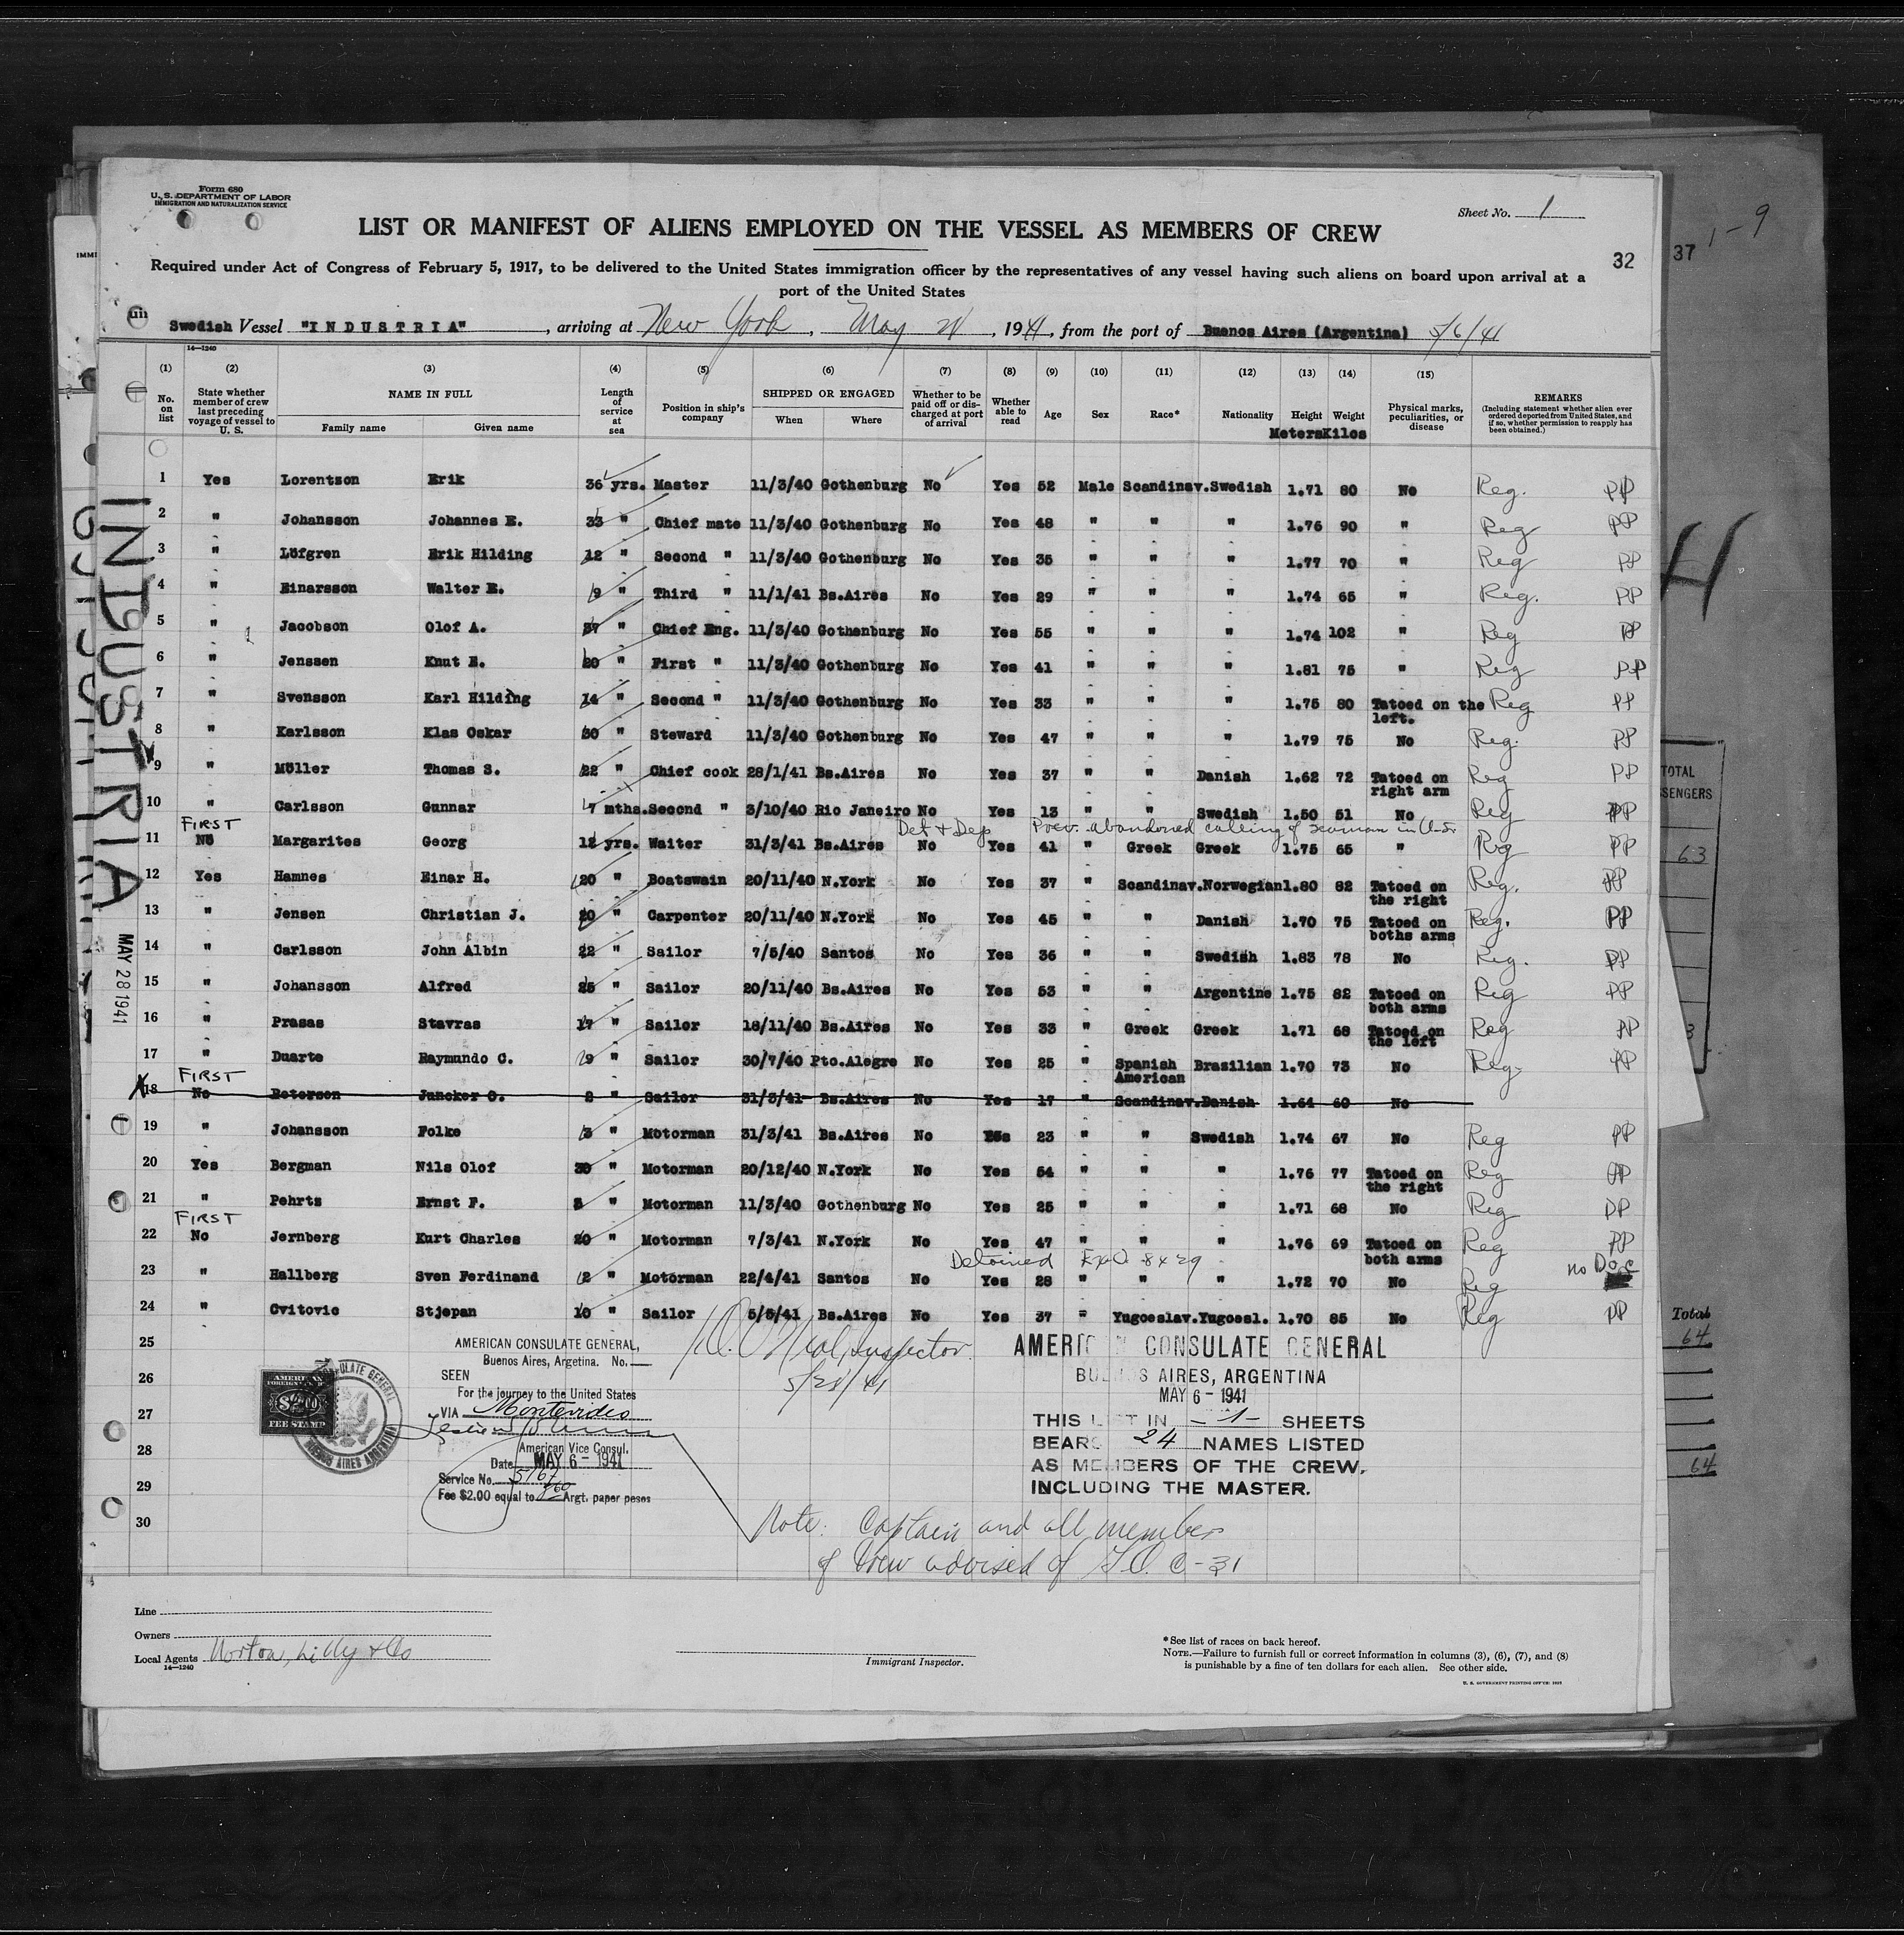 Form 680
U. S. DEPARTMENT OF LABOR
IMMIGRATION AND NATURALIZATION SERVICE
Sheet No. 1
LIST OR MANIFEST OF ALIENS EMPLOYED ON THE VESSEL AS MEMBERS OF CREW
1-9
37
32
Required under Act of Congress of February 5, 1917, to be delivered to the United States immigration officer by the representatives of any vessel having such aliens on board upon arrival at a
port of the United States
Swedish Vessel "INDUSTRIA", arriving at New York, May 28, 1941, from the port of Buenos Aires (Argentina) 5/6/41
14—1240
(1) (2) (3) (4) (5) (6) (7) (8) (9) (10) (11) (12) (13) (14) (15)
No. on list State whether member of crew last preceding voyage of vessel to U. S. NAME IN FULL Family name Given name Length of service at sea Position in ship's company SHIPPED OR ENGAGED When Where Whether to be paid off or discharged at port of arrival Whether able to read Age Sex Race* Nationality Height Meters Weight Kilos Physical marks, peculiarities, or disease REMARKS (Including statement whether alien ever ordered deported from United States, and if so, whether permission to reapply has been obtained.)
1 Yes Lorentson Erik 36 yrs. Master 11/3/40 Gothenburg No Yes 52 Male Scandinav. Swedish 1.71 80 No Reg. PP
2 " Johansson Johannes E. 33 " Chief mate 11/3/40 Gothenburg No Yes 48 " " " 1.76 90 " Reg PP
3 " Löfgren Erik Hilding 12 " Second " 11/3/40 Gothenburg No Yes 35 " " " 1.77 70 " Reg PP
4 " Einarsson Walter E. 9 " Third " 11/1/41 Bs.Aires No Yes 29 " " " 1.74 65 " Reg. PP
5 " Jacobson Olof A. 37 " Chief Eng. 11/3/40 Gothenburg No Yes 55 " " " 1.74 102 " Reg PP
6 " Jenssen Knut E. 20 " First " 11/3/40 Gothenburg No Yes 41 " " " 1.81 75 " Reg PP
7 " Svensson Karl Hilding 14 " Second " 11/3/40 Gothenburg No Yes 33 " " " 1.75 80 Tatoed on the left. Reg PP
8 " Karlsson Klas Oskar 30 " Steward 11/3/40 Gothenburg No Yes 47 " " " 1.79 75 No Reg. PP
9 " Möller Thomas S. 22 " Chief cook 28/1/41 Bs.Aires No Yes 37 " " Danish 1.62 72 Tatoed on right arm Reg PP
10 " Carlsson Gunnar 7 mths. Second " 3/10/40 Rio Janeiro No Yes 13 " " Swedish 1.50 51 No Reg PP
FIRST Def + Dep Prev. abandoned calling of seaman in U.S.
11 No Margarites Georg 12 yrs. Waiter 31/3/41 Bs.Aires No Yes 41 " Greek Greek 1.75 65 " Reg PP
12 Yes Hamnes Einar H. 20 " Boatswain 20/11/40 N.York No Yes 37 " Scandinav. Norwegian 1.80 82 Tatoed on the right Reg. PP
13 " Jensen Christian J. 20 " Carpenter 20/11/40 N.York No Yes 45 " " Danish 1.70 75 Tatoed on boths arms Reg. PP
14 " Carlsson John Albin 22 " Sailor 7/5/40 Santos No Yes 36 " " Swedish 1.83 78 No Reg. PP
15 " Johansson Alfred 25 " Sailor 20/11/40 Bs.Aires No Yes 53 " " Argentine 1.75 82 Tatoed on both arms Reg PP
16 " Prasas Stavras 17 " Sailor 18/11/40 Bs.Aires No Yes 33 " Greek Greek 1.71 68 Tatoed on the left Reg PP
17 " Duarte Raymundo C. 9 " Sailor 30/7/40 Pto.Alegre No Yes 25 " Spanish American Brazilian 1.70 73 No Reg. PP
FIRST
X 18 No Peterson Juncker O. 2 " Sailor 31/3/41 Bs.Aires No Yes 17 " Scandinav. Danish 1.64 60 No
19 " Johansson Folke 3 " Motorman 31/3/41 Bs.Aires No Yes 23 " " Swedish 1.74 67 No Reg PP
20 Yes Bergman Nils Olof 30 " Motorman 20/12/40 N.York No Yes 54 " " " 1.76 77 Tatoed on the right Reg PP
21 " Pehrts Ernst F. " Motorman 11/3/40 Gothenburg No Yes 25 " " " 1.71 68 No Reg PP
FIRST
22 No Jernberg Kurt Charles 20 " Motorman 7/3/41 N.York No Yes 47 " " " 1.76 69 Tatoed on both arms Reg PP
Detained
23 " Hallberg Sven Ferdinand 2 " Motorman 22/4/41 Santos No Yes 28 " " " 1.72 70 No Reg no Doc
24 " Cvitovic Stjepan 10 " Sailor 5/5/41 Bs.Aires No Yes 37 " Yugoeslav. Yugoesl. 1.70 85 No Reg PP
25
26
27
28
29
30
INDUSTRIA
MAY 28 1941
AMERICAN CONSULATE GENERAL,
Buenos Aires, Argetina. No.
SEEN
For the journey to the United States
VIA Montevideo
American Vice Consul.
Date MAY 6 - 1941
Service No. 5167
Fee $2.00 equal to Argt. paper pesos
AMERICAN
FOREIGN SERVICE
$2.00
FEE STAMP
CONSULATE GENERAL
BUENOS AIRES ARGENTINA
Inspector
5/28/41
AMERICAN CONSULATE GENERAL
BUENOS AIRES, ARGENTINA
MAY 6 - 1941
THIS LIST IN -1- SHEETS
BEARS 24 NAMES LISTED
AS MEMBERS OF THE CREW,
INCLUDING THE MASTER.
Note: Captain and all members
of crew advised of G.O. C-31
Line
Owners
Local Agents Norton, Lilly & Co
14—1240
Immigrant Inspector.
*See list of races on back hereof.
NOTE.—Failure to furnish full or correct information in columns (3), (6), (7), and (8)
is punishable by a fine of ten dollars for each alien. See other side.
U. S. GOVERNMENT PRINTING OFFICE
H
TOTAL
63
3
Total
64
64